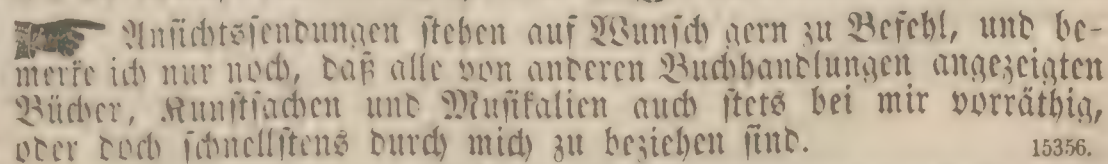 ☛ Ansichtssendungen stehen auf Wunsch gern zu Befehl, und be-
merke ich nur noch, daß alle von anderen Buchhandlungen angezeigten
Bücher, Kunstsachen und Musikalien auch stets bei mir vorräthig,
oder doch schnellstens durch mich zu beziehen sind. 15356.